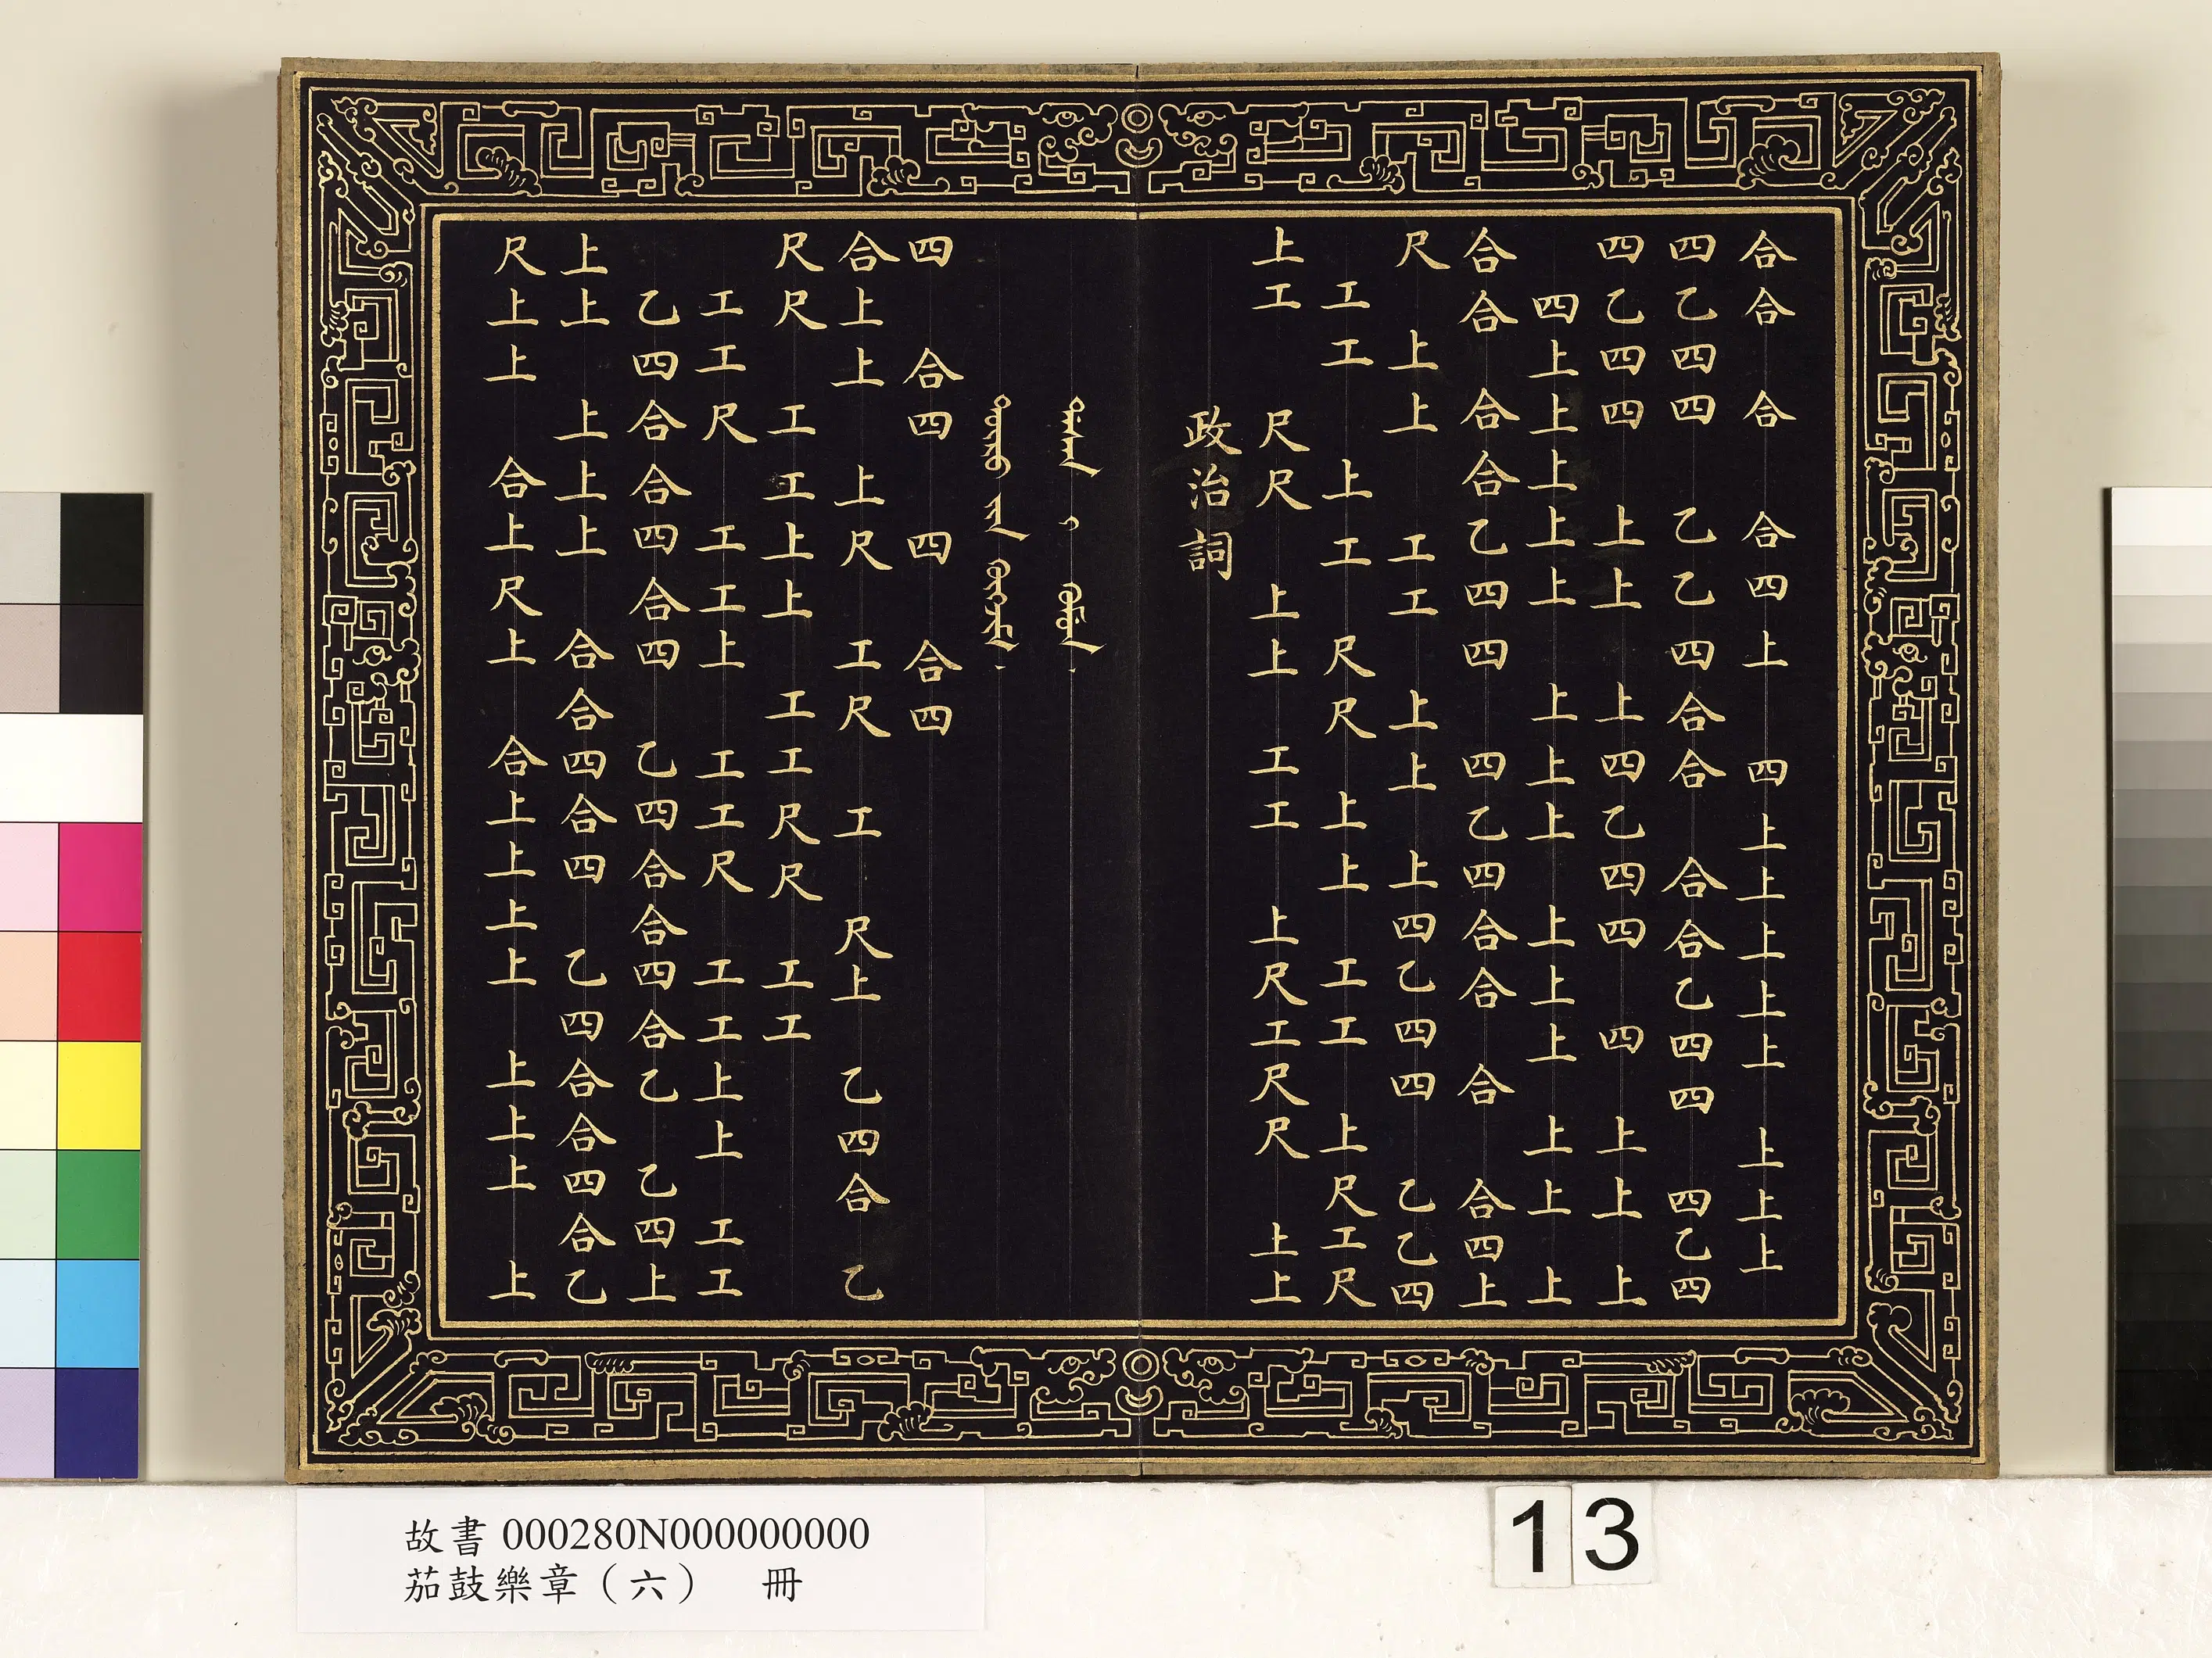 合合 合 合四上 四上上上上上 上上上
四乙四四 乙乙 四合合 合合乙四四 四乙四
四乙四四 上上 上四乙四四 四 上上 上
四上上上上上 上上上 上上上 上上 上
合合 合合乙四四 四乙四合合 合 合四上
尺 上上 工工 上上 上四乙四四 乙乙四
工工 上工 尺尺 上上 工工 上尺工尺
上工 尺尺 上上 工工 上尺工尺尺 上上
政治詞
四 合四 四 合四
合上上 上尺 工尺 工 尺上 乙四合 乙
尺尺 工工上上 工工尺尺 工工
工工尺 工工上 工工尺 工工上上 工工
乙四合合四合四 乙四合合四合乙 乙四上
上上 上上上 合合四合四 乙四合合四合乙
尺上上 合上尺上 合上上上上 上上上 上
故書 000280N000000000
茄鼓樂章（六） 冊
13